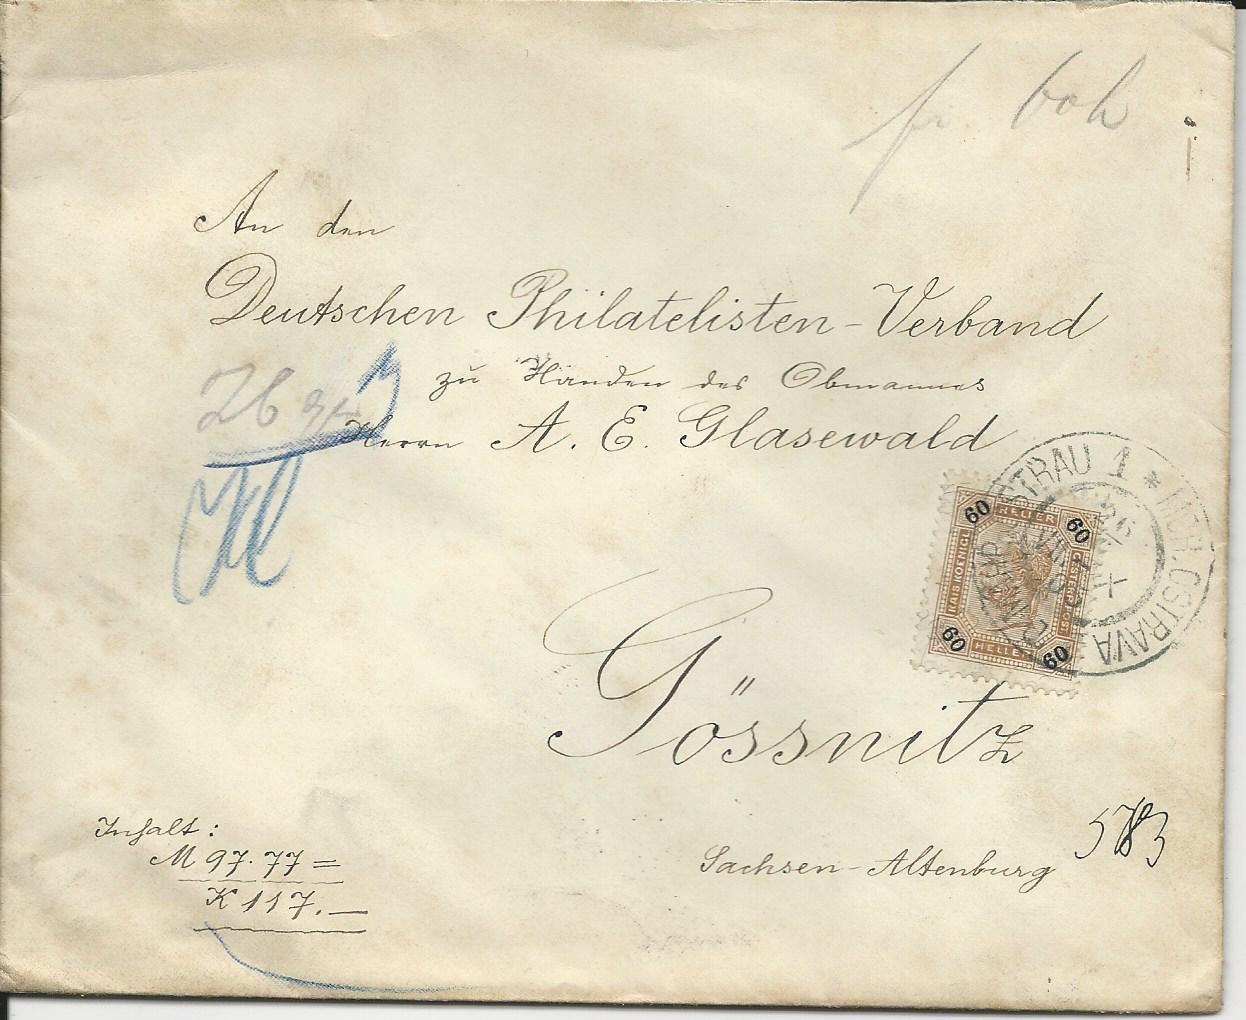 fr. 60 h
An den
Deutschen Philatelisten-Verband
zu Händen des Obmannes
26 gr
Herrn A. E. Glasewald
STRAU 1 * MÄHR. OSTRAVA
60 HELLER 60
KAIS KOENIGL OESTERR POST
60 HELLER 60
Gössnitz
Sachsen-Altenburg
Inhalt:
M 97.77 =
K 117.—